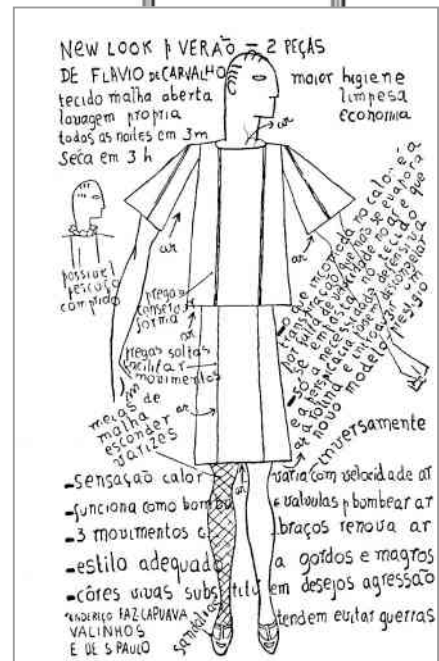 NEW LOOK P VERÃO = 2 PEÇAS
DE FLAVIO DE CARVALHO
tecido malha aberta
lavagem propria
todas as noites em 3m
Seca em 3 h
maior higiene
limpesa
economia
ar
ar
ar
possivel
pescoço
comprido
pregas
conserva
forma
ar
pregas soltas
facilitar
movimentos
ar
meias de
malha
esconder
varizes
-o que incomoda no calor é a
transpiração que não se evapora
por falta de velocidade no ar e que
se empasta no tecido
-só a necessidade defensiva
e a perspicacia podem descongelar
a rotina e introduzir um
novo modelo prestigio
ar
ar
inversamente
-sensação calor varia com velocidade ar
-funciona como bomba e valvulas p bombear ar
-3 movimentos c. braços renova ar
-estilo adequado a gordos e magros
-côres vivas substituem desejos agressão
tendem evitar guerras
ENDEREÇO FAZ. CAPUAVA
VALINHOS
E DE S PAULO
sandalias